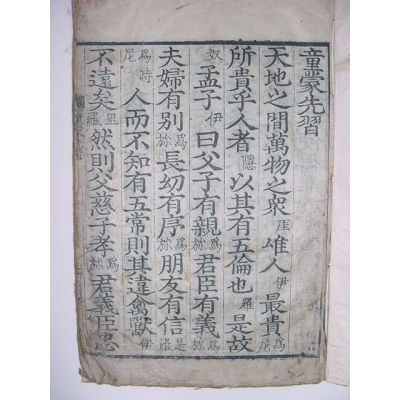 童蒙先習
天地之間萬物之衆厓唯人伊最貴爲尼
所貴乎人者隱以其有五倫也羅是故
奴孟子伊曰父子有親爲㫆君臣有義爲㫆
夫婦有別爲㫆長幼有序爲㫆朋友有信是羅
爲時尼人而不知有五常則其違禽獸伊
不遠矣里羅然則父慈子孝爲㫆君義臣忠